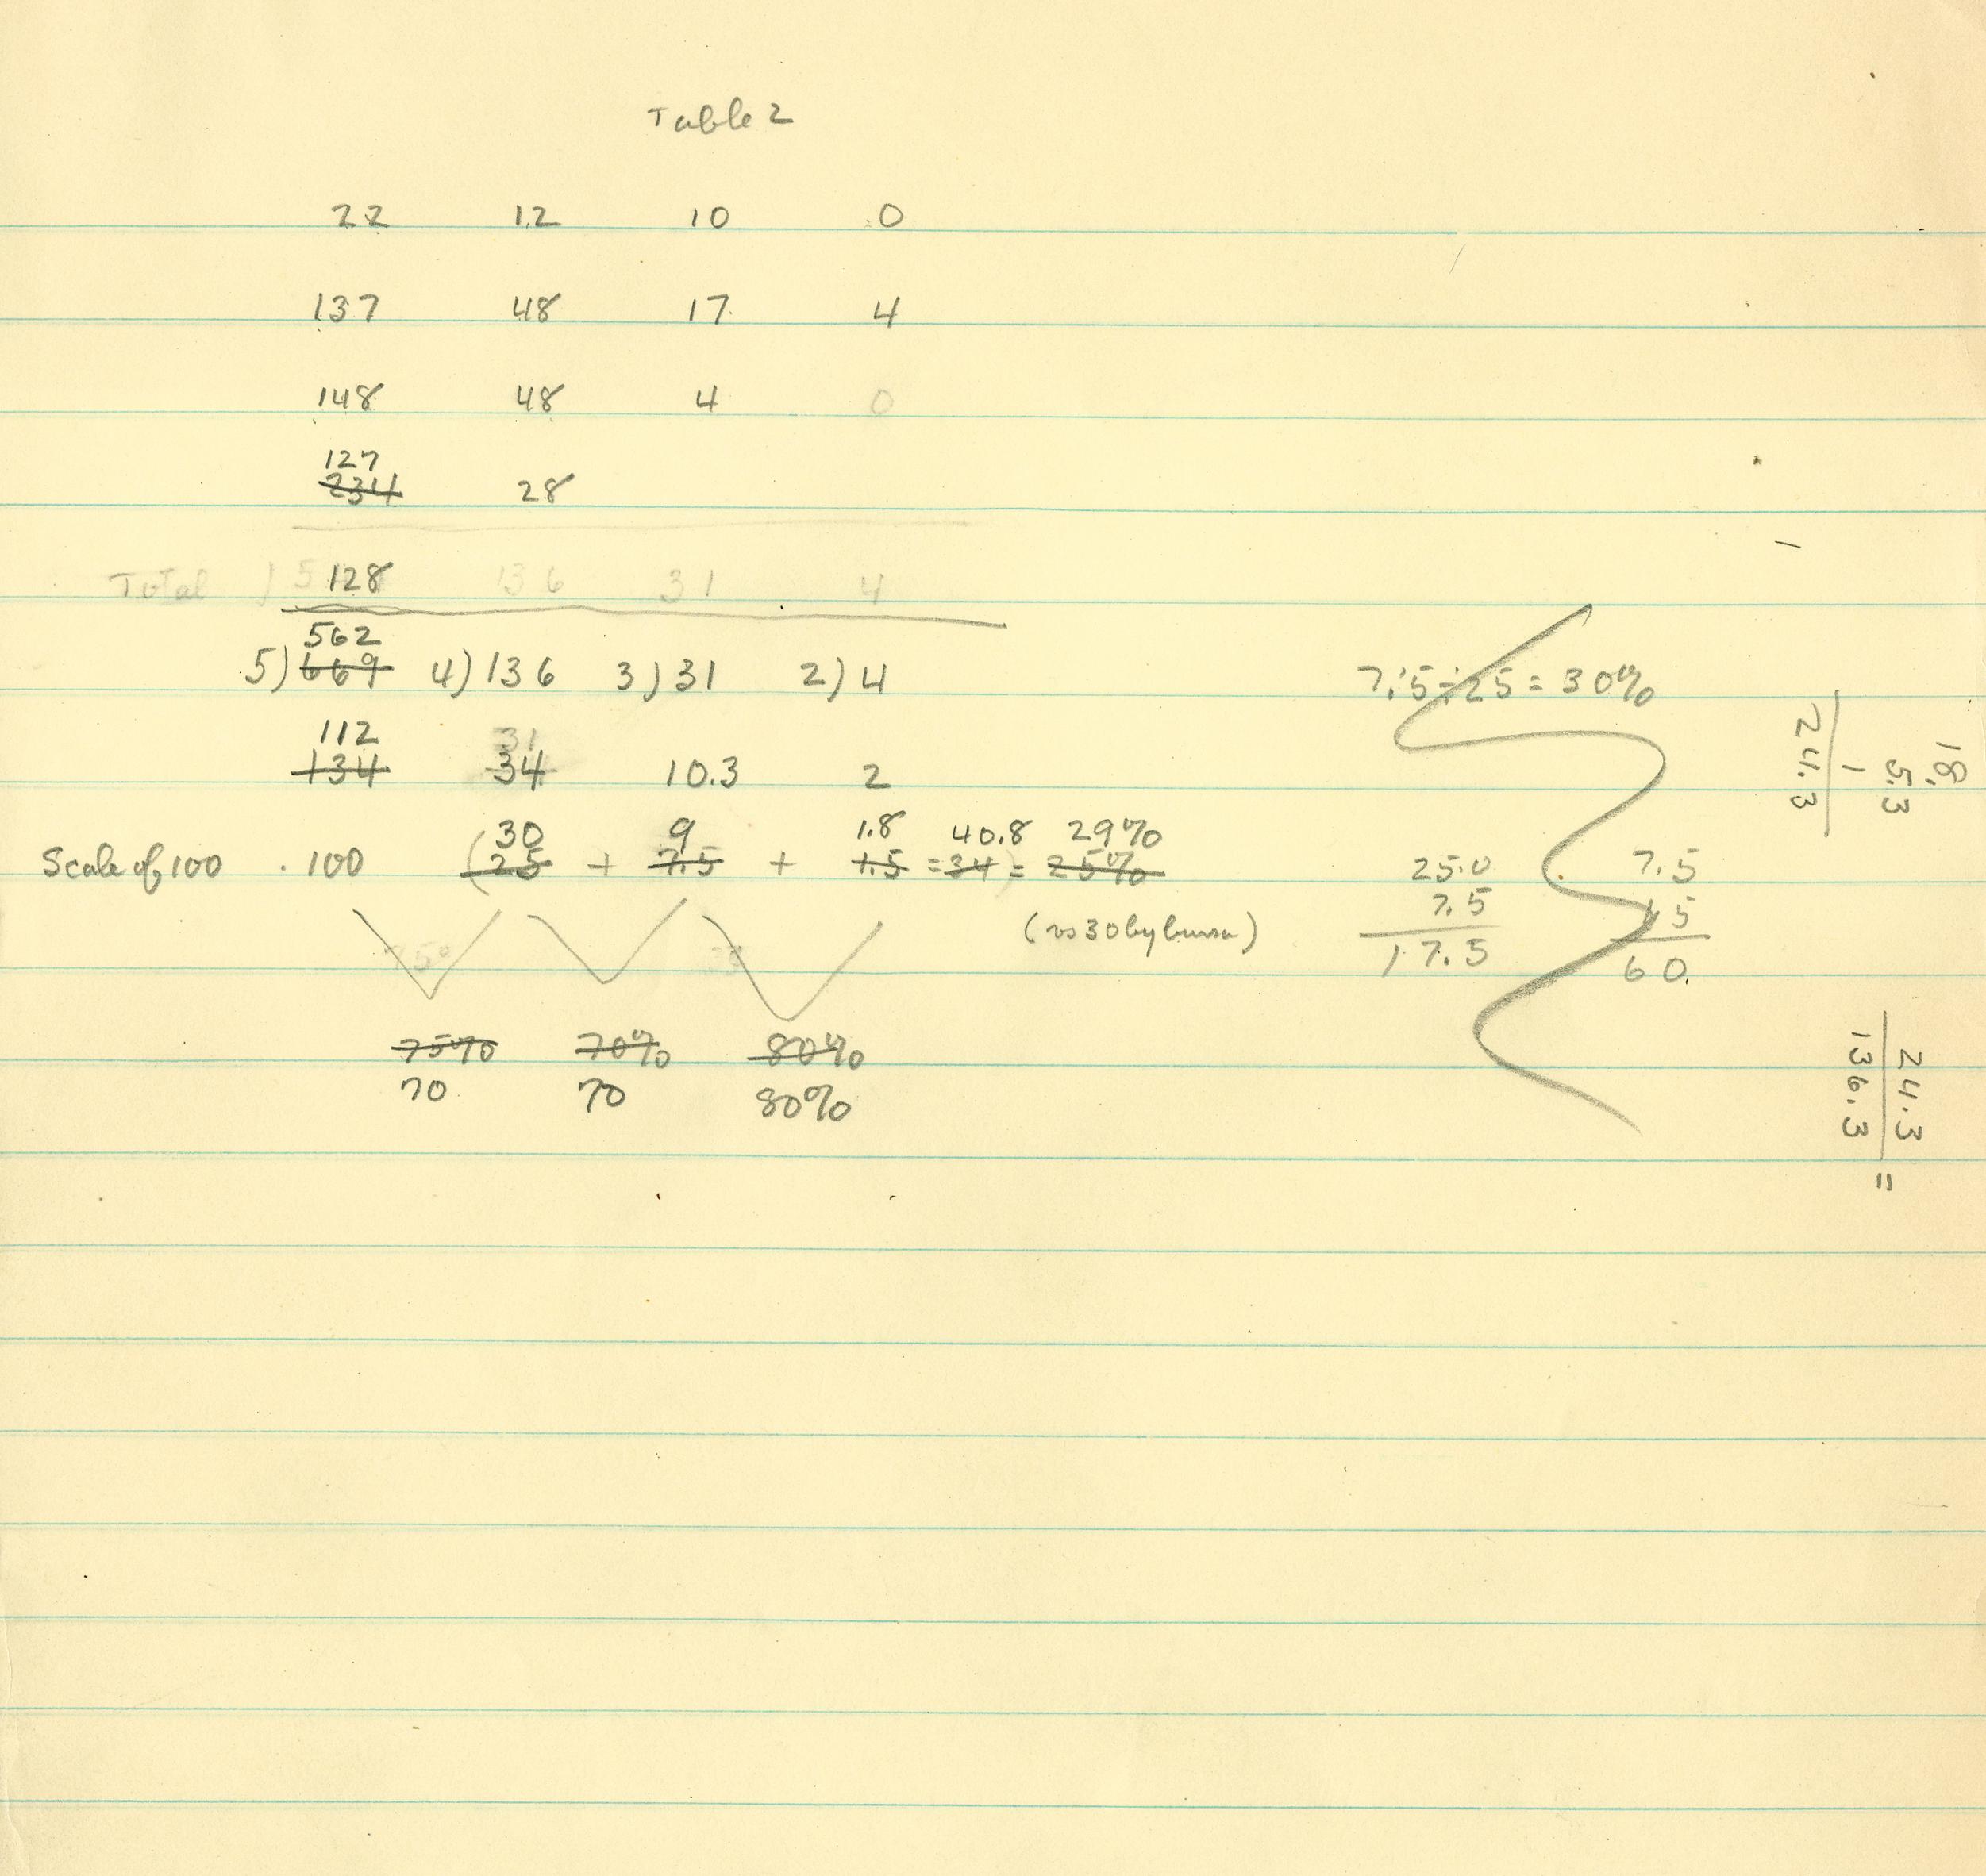 Table 2
22 12 10 0
137 48 17 4
148 48 4 0
127
234 28
Total 128 136 31 4
562
5) 669 4) 136 3) 31 2) 4
112 31
134 34 10.3 2
30 9 1.8 40.8 29%
Scale of 100 . 100 (25 + 7.5 + 1.5 = 34) = 25%
(vs 30 by bursa)
75% 70% 80%
70 70 80%
7.5 ÷ 25 = 30%
25.0
7.5
17.5
7.5
15
60.
18.
5.3
1
24.3
24.3 =
136.3